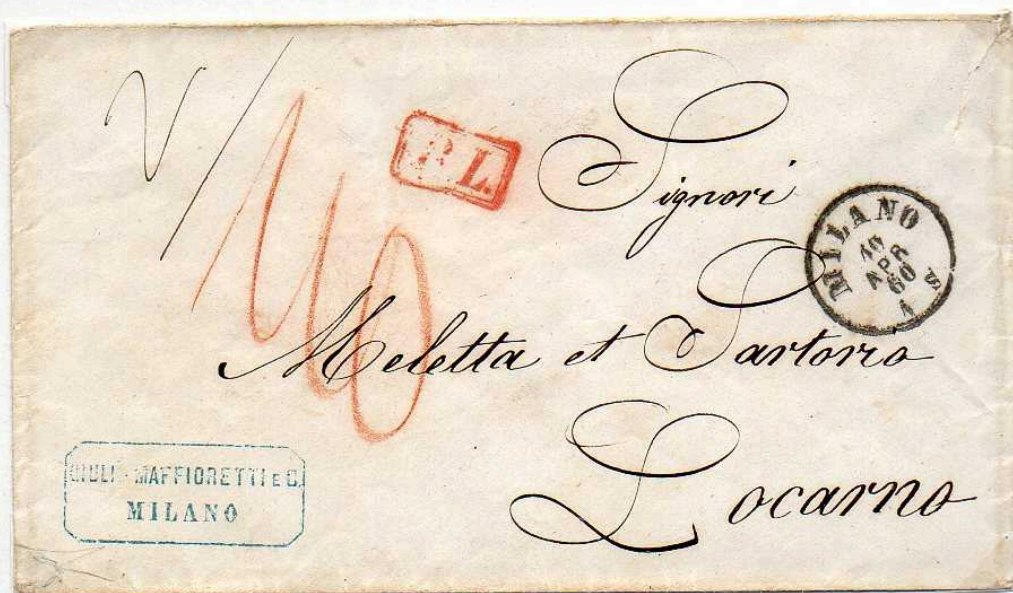 40
P. L.
Signori
MILANO
10
APR
60
S
1
Meletta et Sartorio
Locarno
MAFFIORETTI E C.
MILANO